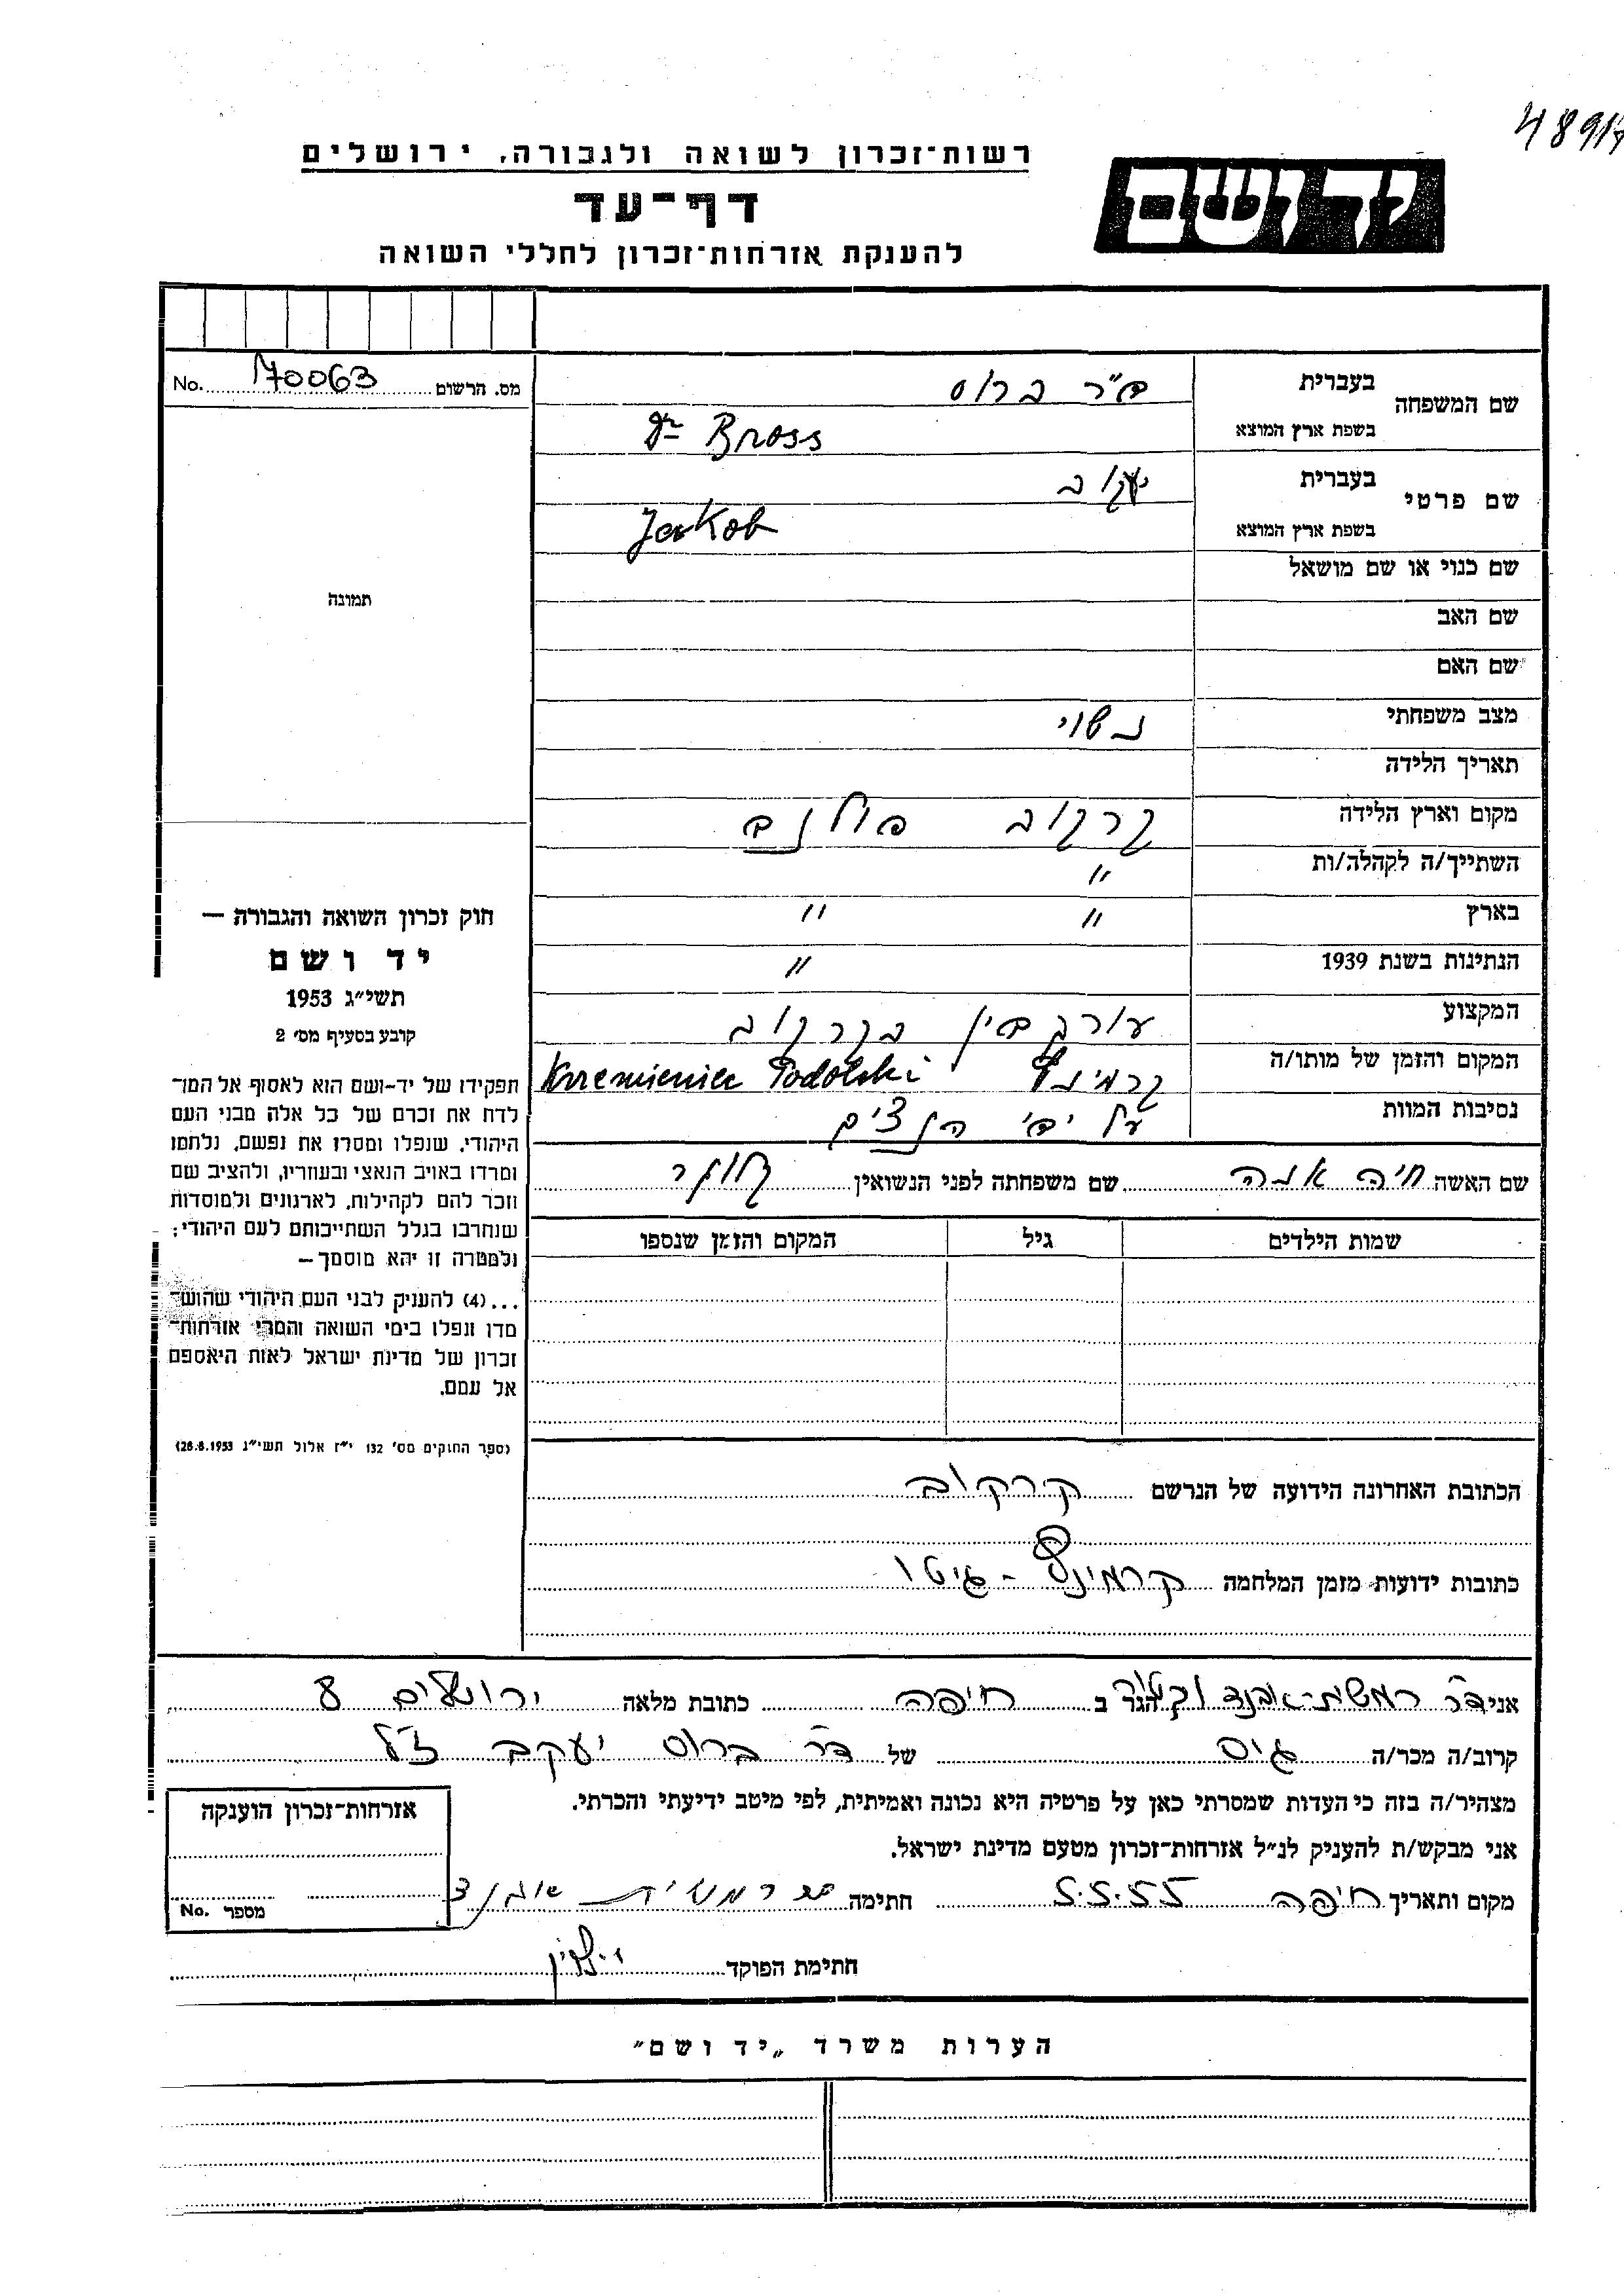 4891
רשות־זכרון לשואה ולגבורה, ירושלים
יד ושם
דף־עד
להענקת אזרחות־זכרון לחללי השואה
מס. הרשום 170063 No.
שם המשפחה
בעברית ד"ר ברוס
בשפת ארץ המוצא Dr Bross
שם פרטי
בעברית יעקוב
בשפת ארץ המוצא Jakob
שם כנוי או שם מושאל
תמונה
שם האב
שם האם
מצב משפחתי נשוי
תאריך הלידה
מקום וארץ הלידה קרקוב פולנה
השתייך/ה לקהלה/ות "
בארץ " "
הנתינות בשנת 1939 "
המקצוע עורך דין בקרקוב
המקום והזמן של מותו/ה קרמינץ Krremieniec Podolski
נסיבות המוות על ידי הנצים
שם האשה חיה אנה שם משפחתה לפני הנשואין
שמות הילדים גיל המקום והזמן שנספו
חוק זכרון השואה והגבורה —
יד ושם
תשי״ג 1953
קובע בסעיף מס׳ 2
תפקידו של יד-ושם הוא לאסוף אל המו־
לדת את זכרם של כל אלה מבני העם
היהודי, שנפלו ומסרו את נפשם, נלחמו
ומרדו באויב הנאצי ובעוזריו, ולהציב שם
וזכר להם לקהילות, לארגונים ולמוסדות
שנחרבו בגלל השתייכותם לעם היהודי;
ולמטרה זו יהא מוסמך —
...(4) להעניק לבני העם היהודי שהוש־
מדו ונפלו בימי השואה והמרי אזרחות־
זכרון של מדינת ישראל לאות היאספם
אל עמם.
(ספר החוקים מס׳ 132 י״ז אלול תשי״ג 28.8.1953)
הכתובת האחרונה הידועה של הנרשם קרקוב
כתובות ידועות מזמן המלחמה קרמינץ - גיטו
אני ד"ר הגר ב חיפה כתובת מלאה ירושלים 8
קרוב/ה מכר/ה גיס של ד"ר ברוס יעקב ז"ל
מצהיר/ה בזה כי העדות שמסרתי כאן על פרטיה היא נכונה ואמיתית, לפי מיטב ידיעתי והכרתי.
אני מבקש/ת להעניק לנ״ל אזרחות־זכרון מטעם מדינת ישראל.
מקום ותאריך חיפה 5.5.55 חתימה
אזרחות־זכרון הוענקה
מספר No.
חתימת הפוקד
הערות משרד „יד ושם״